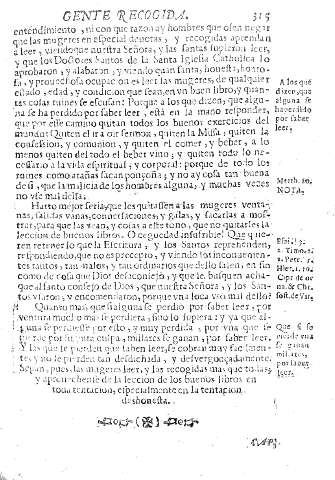 GENTE RECOGIDA. 315
entendimiento, ni con que razon ay hombres que osen negar
que las mugeres en especial devotas, y recogidas aprendan
a leer, viendo que nuestra Señora, y las santas supieron leer,
y que los Doctores Santos de la Santa Iglesia Catholica lo
aprobaron, y alabaron, y viendo quan santa, honesta, honro-
sa, y provechosa ocupacion es leer las mugeres, de qualquier
estado, edad, y condicion que sean, en vn buen libro, y quan-
tas cosas ruines se escusan? Porque a los que dizen, que algu-
na se ha perdido por saber leer, està en la mano responder,
que por esse camino quiten todos los buenos exercicios del
mundo: Quiten el ir a oir sermon, quiten la Missa, quiten la
confession, y comunion, y quiten el comer, y beber, a lo
menos quiten del todo el beber vino, y quiten todo lo ne-
cessario a la vida espiritual, y corporal: porque de todo los
ruines como arañas sacan ponçoña, y no ay cosa tan buena
de si, que la malicia de los hombres alguna, y muchas vezes
no vse mal dellas.
Harto mejor seria, que les quitassen a las mugeres venta-
nas, salidas vanas, conversaciones, y galas, y sacarlas a mos-
trar, para que las vean, y cosas a este tono, que no quitarles la
leccion de buenos libros. O ceguedad insufrible! Que quie-
ren retener lo que la Escritura, y los Santos reprehenden,
respondiendo, que no es precepto, y viendo los inconvenien-
tes tantos, tan malos, y tan ordinarios que dello salen, en fin
como de cosa que Dios desaconseja, y que le busquen acha-
que al santo consejo de Dios, que nuestra Señora, y los San-
tos vsaron, y encomendaron, porque vna loca vsò mal dello?
Quanto mas que si alguna se perdio por saber leer, por
ventura mucho mas se perdiera, sino lo supiera: y ya que al-
guna se perdiesse por esto, y muy perdida, por vna que se
pierde por su pura culpa, millares se ganan, por saber leer.
Y las que se pierden que saben leer, se cobran muy facilmen-
te, y no se pierden tan desdichada, y desvergonçadamente.
Sepan, pues, las mugeres leer, y las recogidas mas que todas,
y aprovechense de la leccion de los buenos libros en
toda tentacion, especialmente en la tentacion
deshonesta.
A los que
dizen, que
alguna se
ha perdido
por saber
leer,
Matth. 10.
NOTA.
Que si se
pierde vna
se ganan
millares,
por saber
leer.
CAP.